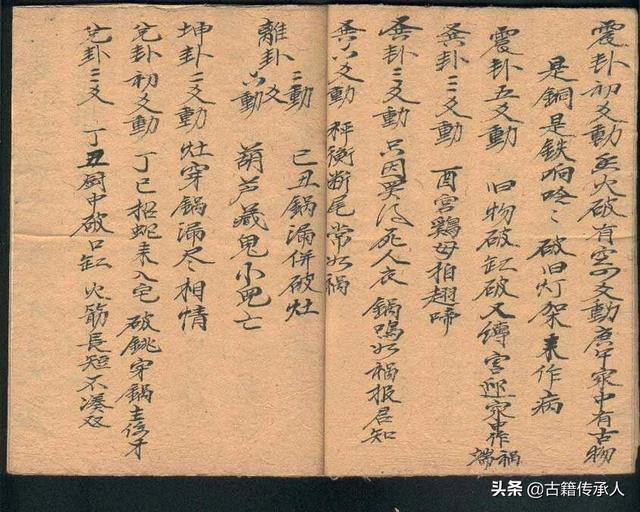 震卦初爻動 火破有空 爻動庚午家中有古物
是銅是鉄响呤〻破旧灯架来作病
震卦五爻動 旧物破缸破又縛宫 家中作禍端
巽卦二爻動 酉宫鶏母拍翅啼
巽卦三爻動 只因男 死人衣 鍋鳴 禍报君知
巽六爻動 秤衡断尾常 禍
離卦二動 己丑鍋漏併破灶
六爻動 葫芦藏鬼小児亡
坤卦二爻動 灶穿鍋漏尽相情
兑卦初爻動 丁巳招蛇来入宅 破銚穿鍋
兑卦二爻 丁丑厨中破口缸 火筋長短不凑双
头条 @古籍传承人